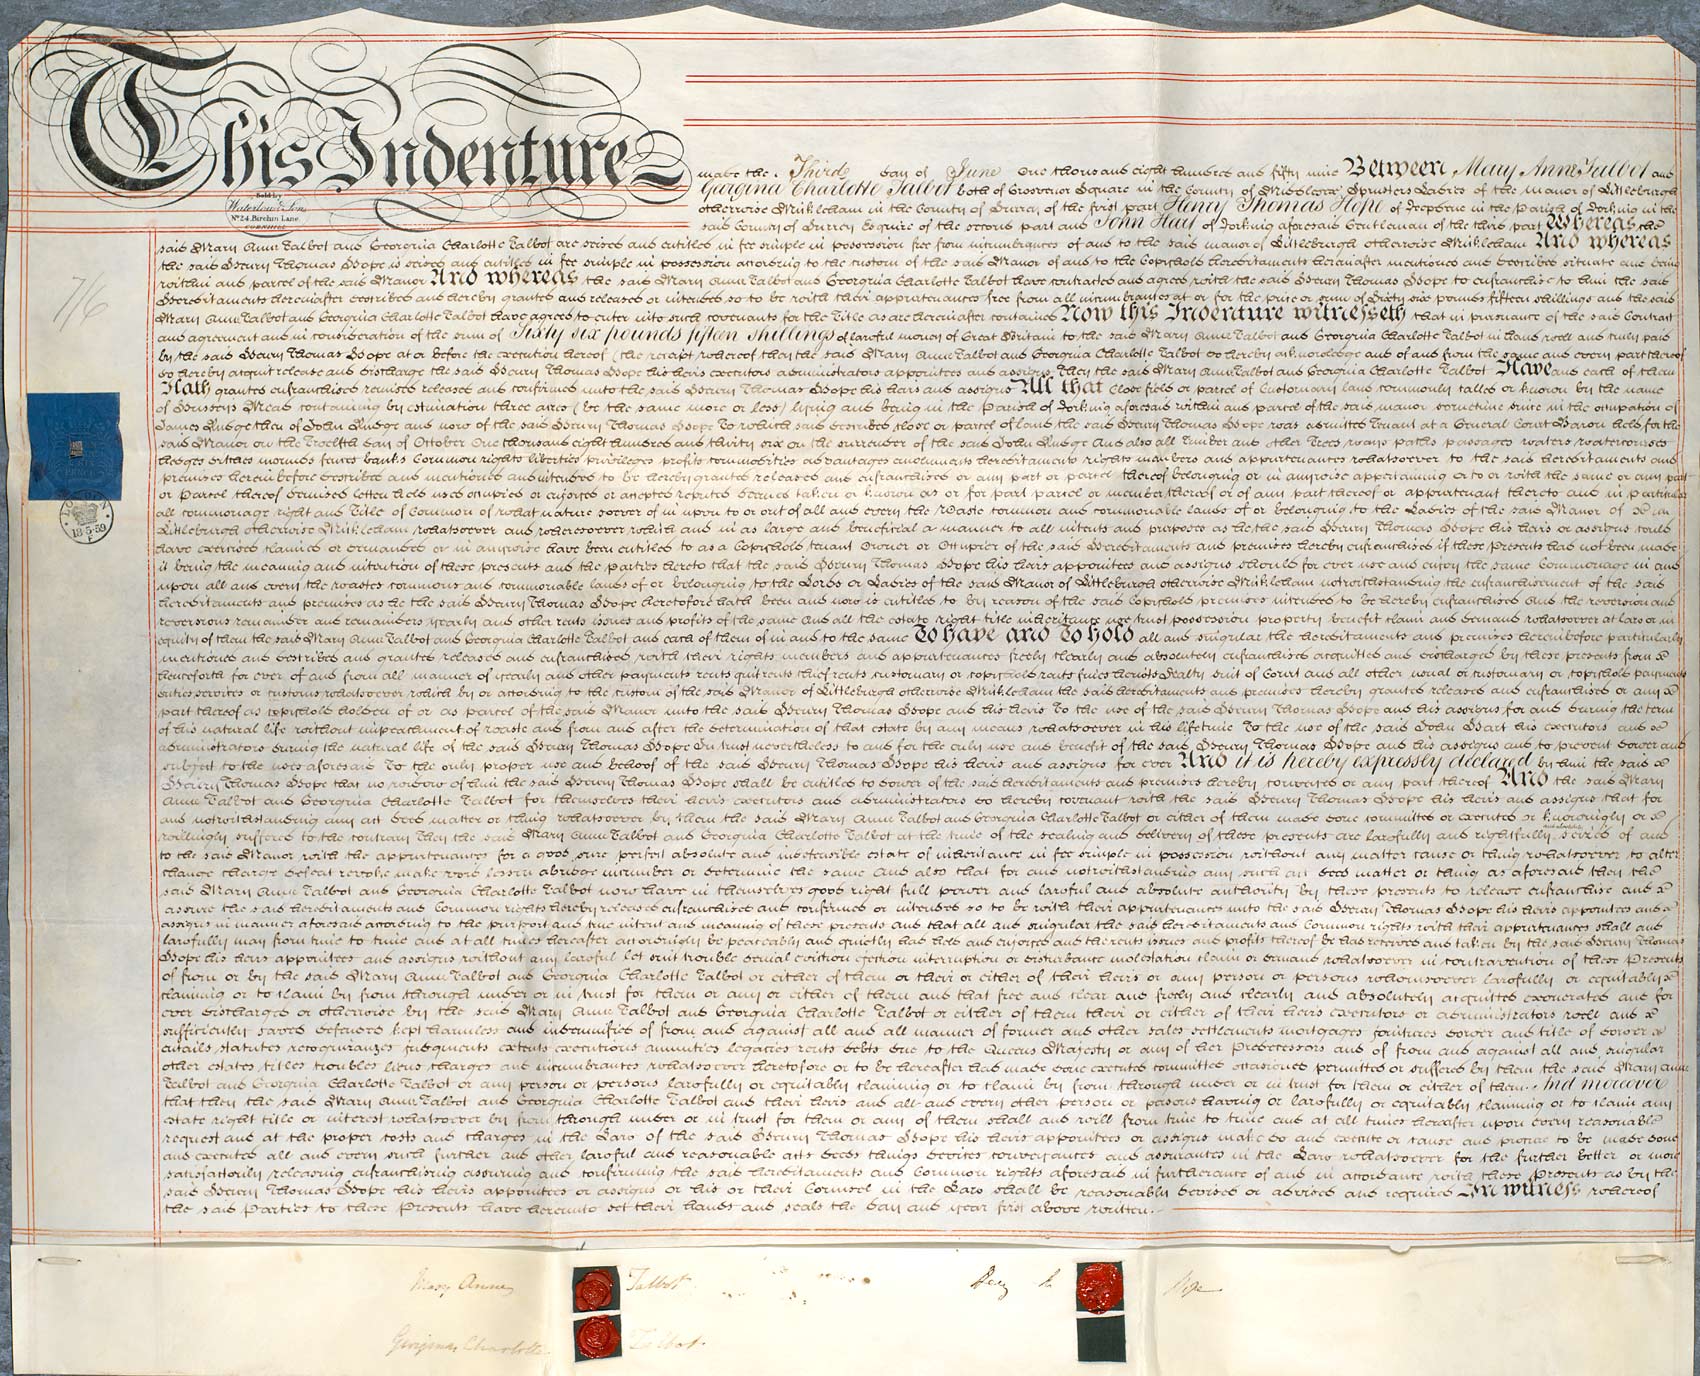 This Indenture
Sold by
Waterlow & Son
No. 24, Birchin Lane
CORNHILL
made the Third day of June One thousand eight hundred and fifty nine Between Mary Anne Talbot and
Georgina Charlotte Talbot both of Grosvenor Square in the County of Middlesex Spinsters Ladies of the Manor of Littleburgh
otherwise Mickleham in the County of Surrey of the first part Henry Thomas Hope of Deepdene in the Parish of Dorking in the
said County of Surrey Esquire of the second part and John Hart of Dorking aforesaid Gentleman of the third part Whereas the
said Mary Anne Talbot and Georgina Charlotte Talbot are seised and entitled in fee simple in possession free from incumbrances of and to the said manor of Littleburgh otherwise Mickleham And whereas
the said Henry Thomas Hope is seised and entitled in fee simple in possession according to the custom of the said Manor of and to the Copyhold hereditaments hereinafter mentioned and described situate and being
within and parcel of the said Manor And whereas the said Mary Anne Talbot and Georgina Charlotte Talbot have contracted and agreed with the said Henry Thomas Hope to enfranchise to him the said
Hereditaments hereinafter described and hereby granted and released or intended so to be with their appurtenances free from all incumbrances at or for the price or sum of Sixty six pounds fifteen shillings and the said
Mary Anne Talbot and Georgina Charlotte Talbot have agreed to enter into such covenants for the Title as are hereinafter contained Now this Indenture witnesseth that in pursuance of the said Contract
and agreement and in consideration of the sum of Sixty six pounds fifteen shillings of lawful money of Great Britain to the said Mary Anne Talbot and Georgina Charlotte Talbot in hand well and truly paid
by the said Henry Thomas Hope at or before the execution hereof (the receipt whereof they the said Mary Anne Talbot and Georgina Charlotte Talbot do hereby acknowledge and of and from the same and every part thereof
do hereby acquit release and discharge the said Henry Thomas Hope his heirs executors administrators appointees and assigns) They the said Mary Anne Talbot and Georgina Charlotte Talbot Have and each of them
Hath granted enfranchised remised released and confirmed unto the said Henry Thomas Hope his heirs and assigns All that Close field or parcel of Customary land commonly called or known by the name
of Mead containing by estimation three acres (be the same more or less) lying and being in the Parish of Dorking aforesaid within and parcel of the said manor sometime since in the occupation of
James then of John and now of the said Henry Thomas Hope To which said described close or parcel of land the said Henry Thomas Hope was admitted Tenant at a General Court Baron held for the
said Manor on the Twelfth day of October One thousand eight hundred and thirty six on the surrender of the said John And also all Timber and other Trees ways paths passages waters watercourses
hedges ditches mounds fences banks Common rights liberties privileges profits commodities advantages emoluments hereditaments rights members and appurtenances whatsoever to the said hereditaments and
premises herein before described and mentioned and intended to be hereby granted released and enfranchised or any part or parcel thereof belonging or in anywise appertaining or to or with the same or any part
or Parcel thereof demised letten held used occupied or enjoyed or accepted reputed deemed taken or known as or for part parcel or member thereof or of any part thereof or appurtenant thereto and in particular
all commonage right and Title of Common of what nature soever of in upon to or out of all and every the Waste common and commonable lands of or belonging to the Ladies of the said Manor of
Littleburgh otherwise Mickleham whatsoever and wheresoever which and in as large and beneficial a manner to all intents and purposes as he the said Henry Thomas Hope his heirs or assigns could
have exercised claimed or demanded or in anywise have been entitled to as a Copyhold tenant Owner or Occupier of the said Hereditaments and premises hereby enfranchised if these Presents had not been made
it being the meaning and intention of these presents and the parties hereto that the said Henry Thomas Hope his heirs appointees and assigns should for ever use and enjoy the same Commonage in and
upon all and every the wastes commons and commonable lands of or belonging to the Lords or Ladies of the said Manor of Littleburgh otherwise Mickleham notwithstanding the enfranchisement of the said
hereditaments and premises as he the said Henry Thomas Hope heretofore hath been and now is entitled to by reason of the said Copyhold premises intended to be hereby enfranchised And the reversion and
reversions remainder and remainders yearly and other rents issues and profits of the same And all the estate right title inheritance use trust possession property benefit claim and demand whatsoever at law or in
equity of them the said Mary Anne Talbot and Georgina Charlotte Talbot and each of them of in and to the same To have and To hold all and singular the hereditaments and premises hereinbefore particularly
mentioned and described and granted released and enfranchised with their rights members and appurtenances freely clearly and absolutely enfranchised acquitted and discharged by these presents from
henceforth for ever of and from all manner of yearly and other payments rents quit rents chief rents customary or copyhold rents fines heriots fealty suit of Court and all other usual or customary or copyhold payments
duties services or customs whatsoever which by or according to the custom of the said Manor of Littleburgh otherwise Mickleham the said hereditaments and premises hereby granted released and enfranchised or any
part thereof as copyhold holden of or as parcel of the said Manor unto the said Henry Thomas Hope and his heirs To the use of the said Henry Thomas Hope and his assigns for and during the term
of his natural life without impeachment of waste and from and after the determination of that estate by any means whatsoever in his lifetime To the use of the said John Hart his executors and
administrators during the natural life of the said Henry Thomas Hope In trust nevertheless to and for the only use and benefit of the said Henry Thomas Hope and his assigns and to prevent dower and
subject to the uses aforesaid To the only proper use and behoof of the said Henry Thomas Hope his heirs and assigns for ever And it is hereby expressly declared by him the said
Henry Thomas Hope that no widow of him the said Henry Thomas Hope shall be entitled to dower of the said hereditaments and premises hereby conveyed or any part thereof And the said Mary
Anne Talbot and Georgina Charlotte Talbot for themselves their heirs executors and administrators do hereby covenant with the said Henry Thomas Hope his heirs and assigns that for
and notwithstanding any act deed matter or thing whatsoever by them the said Mary Anne Talbot and Georgina Charlotte Talbot or either of them made done committed or executed or knowingly or
willingly suffered to the contrary They the said Mary Anne Talbot and Georgina Charlotte Talbot at the time of the sealing and delivery of these presents are lawfully and rightfully seised of and
to the said Manor with the appurtenances for a good sure perfect absolute and indefeasible estate of inheritance in fee simple in possession without any matter cause or thing whatsoever to alter
change charge defeat revoke make void lessen abridge incumber or determine the same And also that for and notwithstanding any such act deed matter or thing as aforesaid they the
said Mary Anne Talbot and Georgina Charlotte Talbot now have in themselves good right full power and lawful and absolute authority by these presents to release enfranchise and
assure the said hereditaments and Common rights hereby released enfranchised and confirmed or intended so to be with their appurtenances unto the said Henry Thomas Hope his heirs appointees and
assigns in manner aforesaid according to the purport and true intent and meaning of these presents and that all and singular the said hereditaments and Common rights with their appurtenances shall and
lawfully may from time to time and at all times hereafter accordingly be peaceably and quietly had held and enjoyed and the rents issues and profits thereof be had received and taken by the said Henry Thomas
Hope his heirs appointees and assigns without any lawful let suit trouble denial eviction ejection interruption or disturbance molestation claim or demand whatsoever in contravention of these Presents
of from or by the said Mary Anne Talbot and Georgina Charlotte Talbot or either of them or their or either of their heirs or any person or persons whomsoever lawfully or equitably
claiming or to claim by from through under or in trust for them or any or either of them and that free and clear and freely and clearly and absolutely acquitted exonerated and for
ever discharged or otherwise by the said Mary Anne Talbot and Georgina Charlotte Talbot or either of them their or either of their heirs executors or administrators well and
sufficiently saved defended kept harmless and indemnified of from and against all and all manner of former and other sales settlements mortgages jointures dower and title of dower
entails statutes recognizances judgments extents executions annuities legacies rents debts due to the Queens Majesty or any of her Predecessors and of from and against all and singular
other estates titles troubles liens charges and incumbrances whatsoever heretofore or to be hereafter had made done executed committed occasioned permitted or suffered by them the said Mary Anne
Talbot and Georgina Charlotte Talbot or any person or persons lawfully or equitably claiming or to claim by from through under or in trust for them or either of them And moreover
that they the said Mary Anne Talbot and Georgina Charlotte Talbot and their heirs and all and every other person or persons having or lawfully or equitably claiming or to claim any
estate right title or interest whatsoever by from through under or in trust for them or any of them shall and will from time to time and at all times hereafter upon every reasonable
request and at the proper costs and charges in the Law of the said Henry Thomas Hope his heirs appointees or assigns make do and execute or cause and procure to be made done
and executed all and every such further and other lawful and reasonable acts deeds things devices conveyances and assurances in the Law whatsoever for the further better or more
satisfactorily releasing enfranchising assuring and confirming the said hereditaments and Common rights aforesaid in furtherance of and in accordance with these Presents as by the
said Henry Thomas Hope his heirs appointees or assigns or his or their Counsel in the Law shall be reasonably devised or advised and required In witness whereof
the said Parties to these Presents have hereunto set their hands and seals the day and year first above written.
7/6
LONDON
18-5-59
F
Mary Anne Talbot
Hope
Georgina Charlotte Talbot